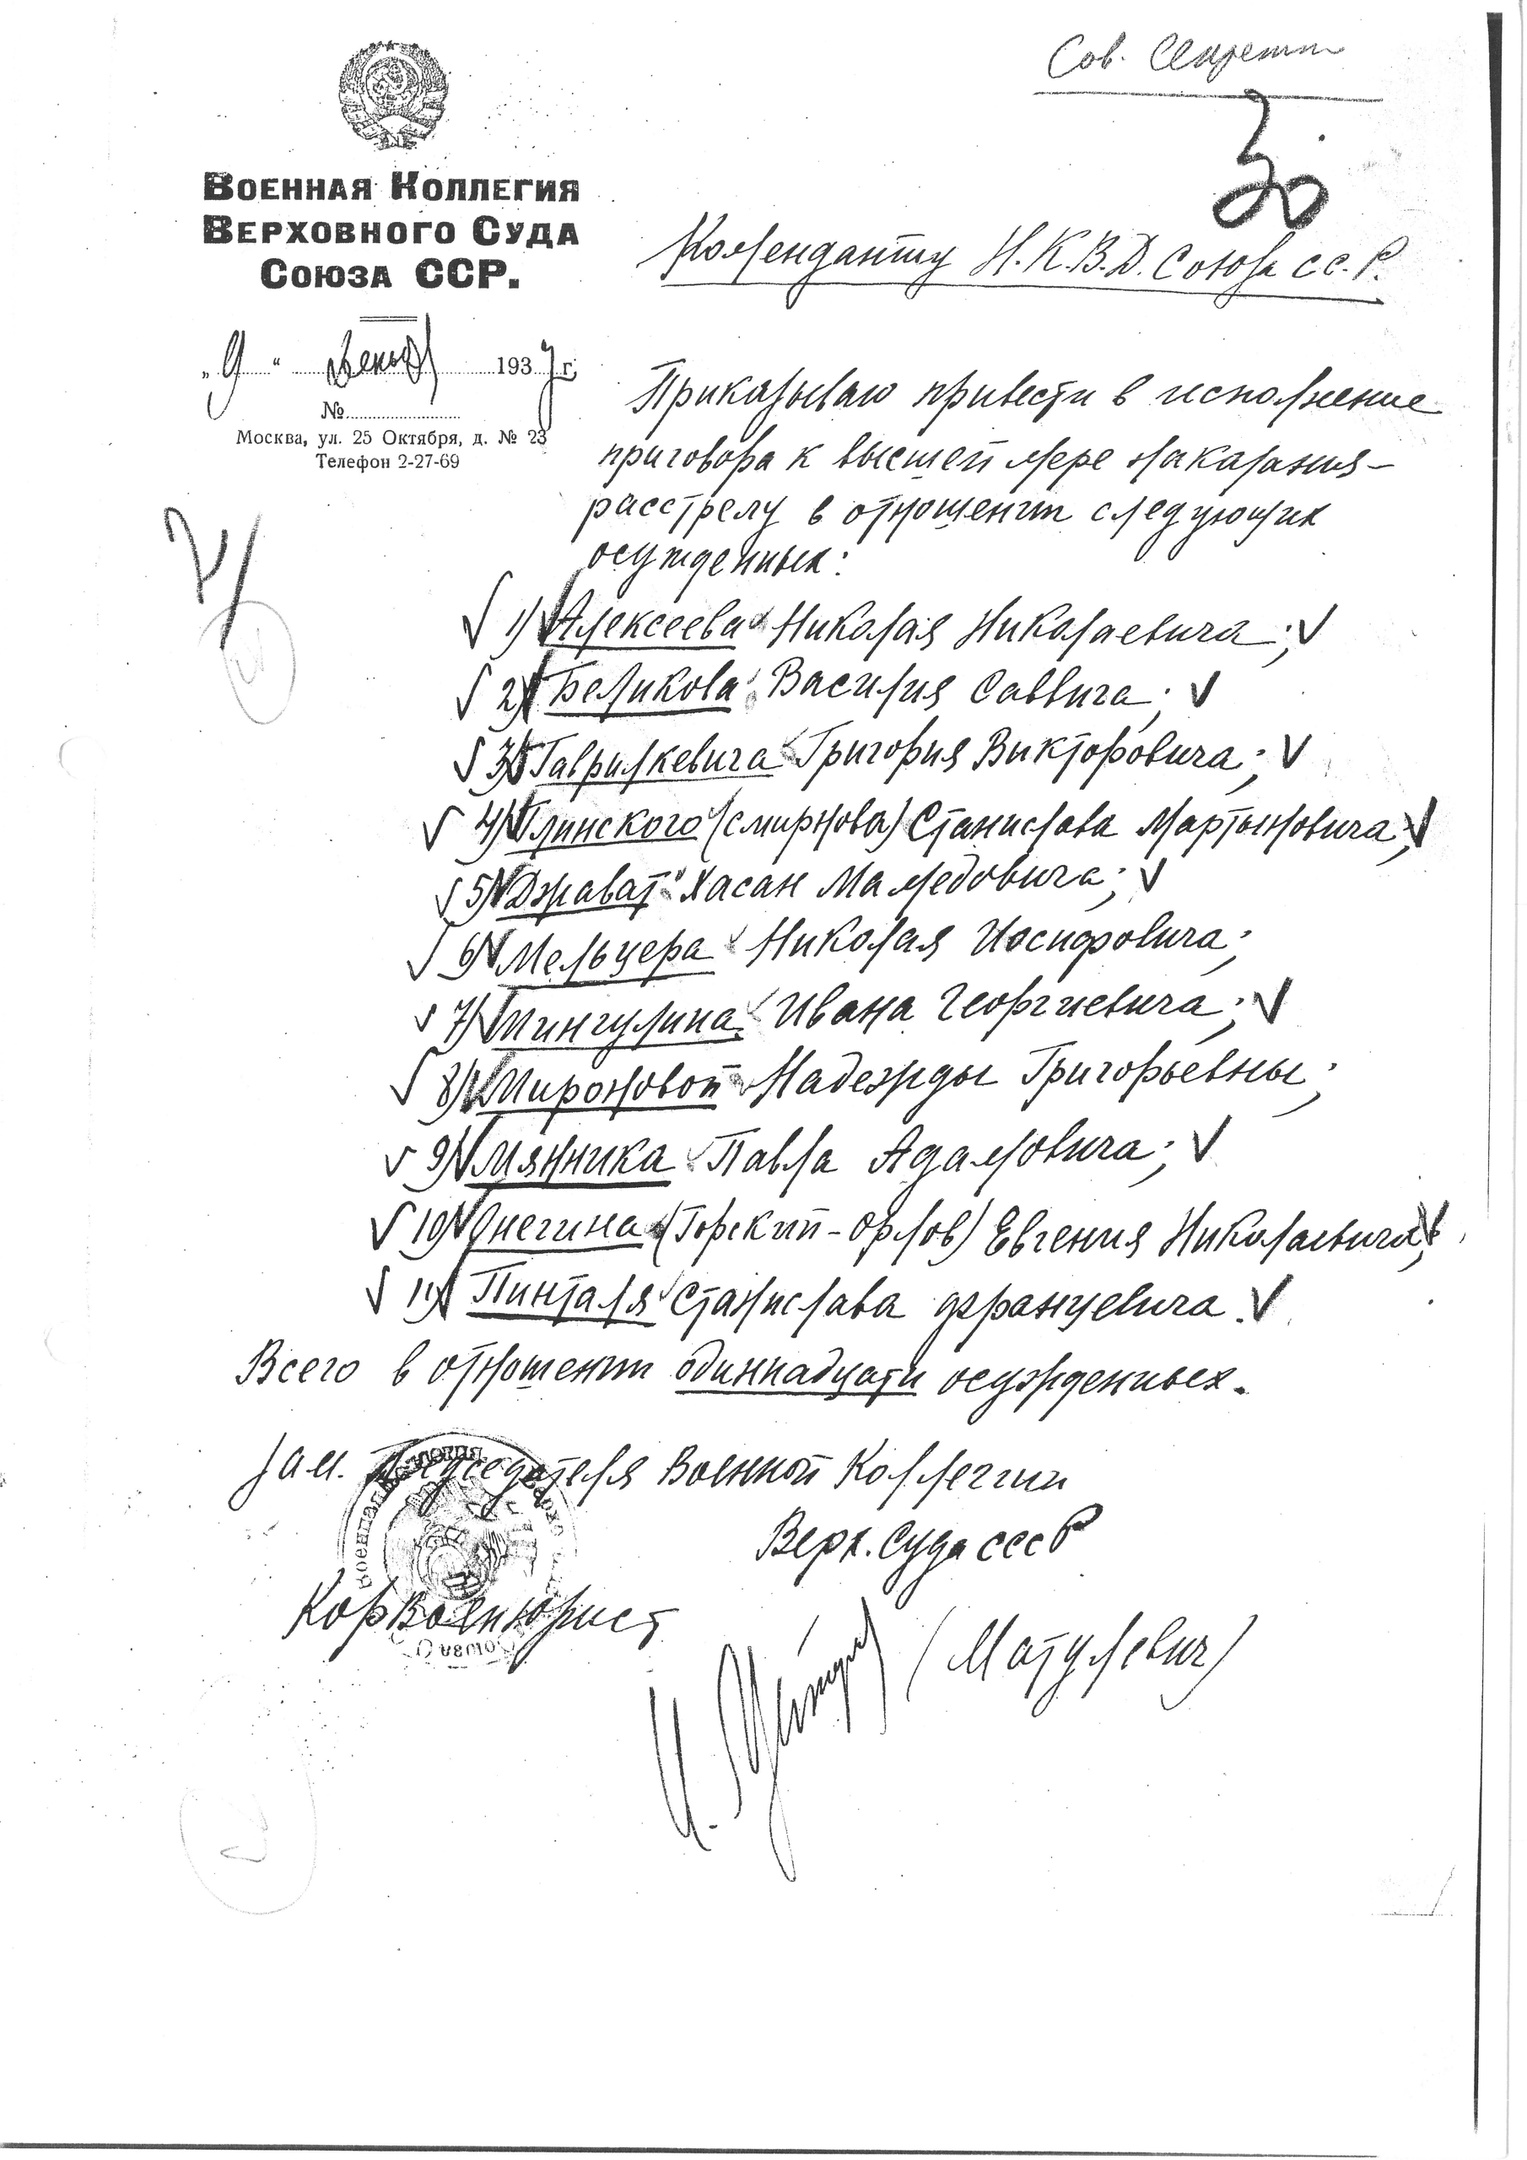 Сов. Секретно
30.
ВОЕННАЯ КОЛЛЕГИЯ
ВЕРХОВНОГО СУДА
СОЮЗА ССР.
„9“ декаб 1937 г.
№
Москва, ул. 25 Октября, д. № 23
Телефон 2-27-69
Коменданту Н.К.В.Д. Союза С.С.Р.
Приказываю привести в исполнение
приговора к высшей мере наказания –
расстрелу в отношении следующих
осужденных:
1) Алексеева Николая Николаевича;
2) Беликова Василия Саввича;
3) Гаврилкевича Григория Викторовича;
4) Глинского (Смирнова) Станислава Мартыновича;
5) Джават Хасан Мамедовича;
6) Мельцера Николая Иосифовича;
7) Мингулина Ивана Георгиевича;
8) Мироновой Надежды Григорьевны;
9) Мянника Павла Адамовича;
10) Онегина (Горский-Орлов) Евгения Николаевича;
11) Пинталя Станислава Францевича.
Всего в отношении одиннадцати осужденных.
Зам. Председателя Военной Коллегии
Верх. Суда СССР
Корвоенюрист
(Матулевич)